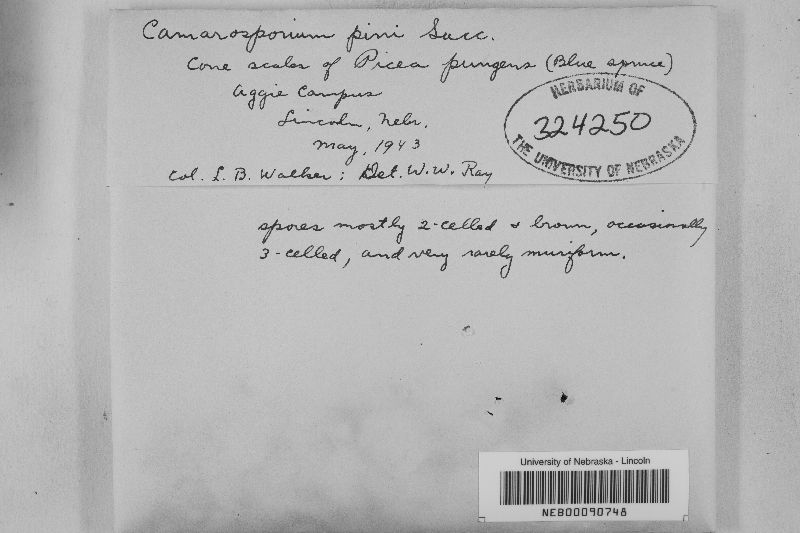 Camarosporium pini Sacc.
Cone scales of Picea pungens (Blue spruce)
Aggie Campus
Lincoln, Nebr.
May, 1943
Col. L. B. Walker; Det. W. W. Ray
HERBARIUM OF
324250
THE UNIVERSITY OF NEBRASKA
spores mostly 2-celled & brown, occasionally
3-celled, and very rarely muriform.
University of Nebraska - Lincoln
NEB00090748